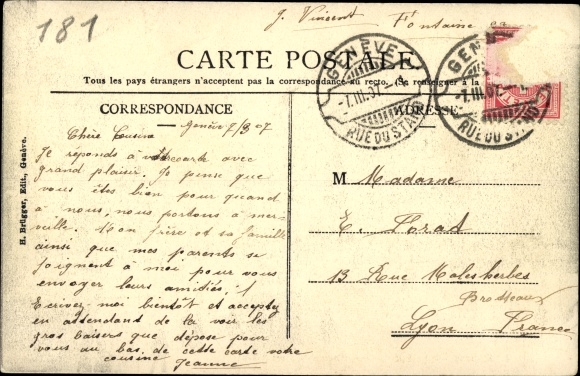 181
J. Vincent Fontaine
CARTE POSTALE.
Tous les pays étrangers n'acceptent pas la correspondance au recto. (Se renseigner à la
GENÈVE
-7.III.07-
RUE DU STAND
GENÈVE
-7.III.07-
RUE DU STAND
CORRESPONDANCE
ADRESSE
H. Brügger, Edit., Genève.
Genève 7/3 07
Chère Cousine
Je réponds à votre carte avec
grand plaisir. Je pense que
vous êtes bien pour quand
à nous, nous portons à mer-
veille. Mon frère et sa famille
ainsi que mes parents se
joignent à moi pour vous
envoyer leurs amitiés, !
Ecrivez-moi bientôt et acceptez
en attendant de la voir les
gros baisers que dépose pour
vous au bas de cette carte votre
cousine Jeanne
M Madame
E. Forad
13 Rue Malesherbes
Brotteaux
Lyon France